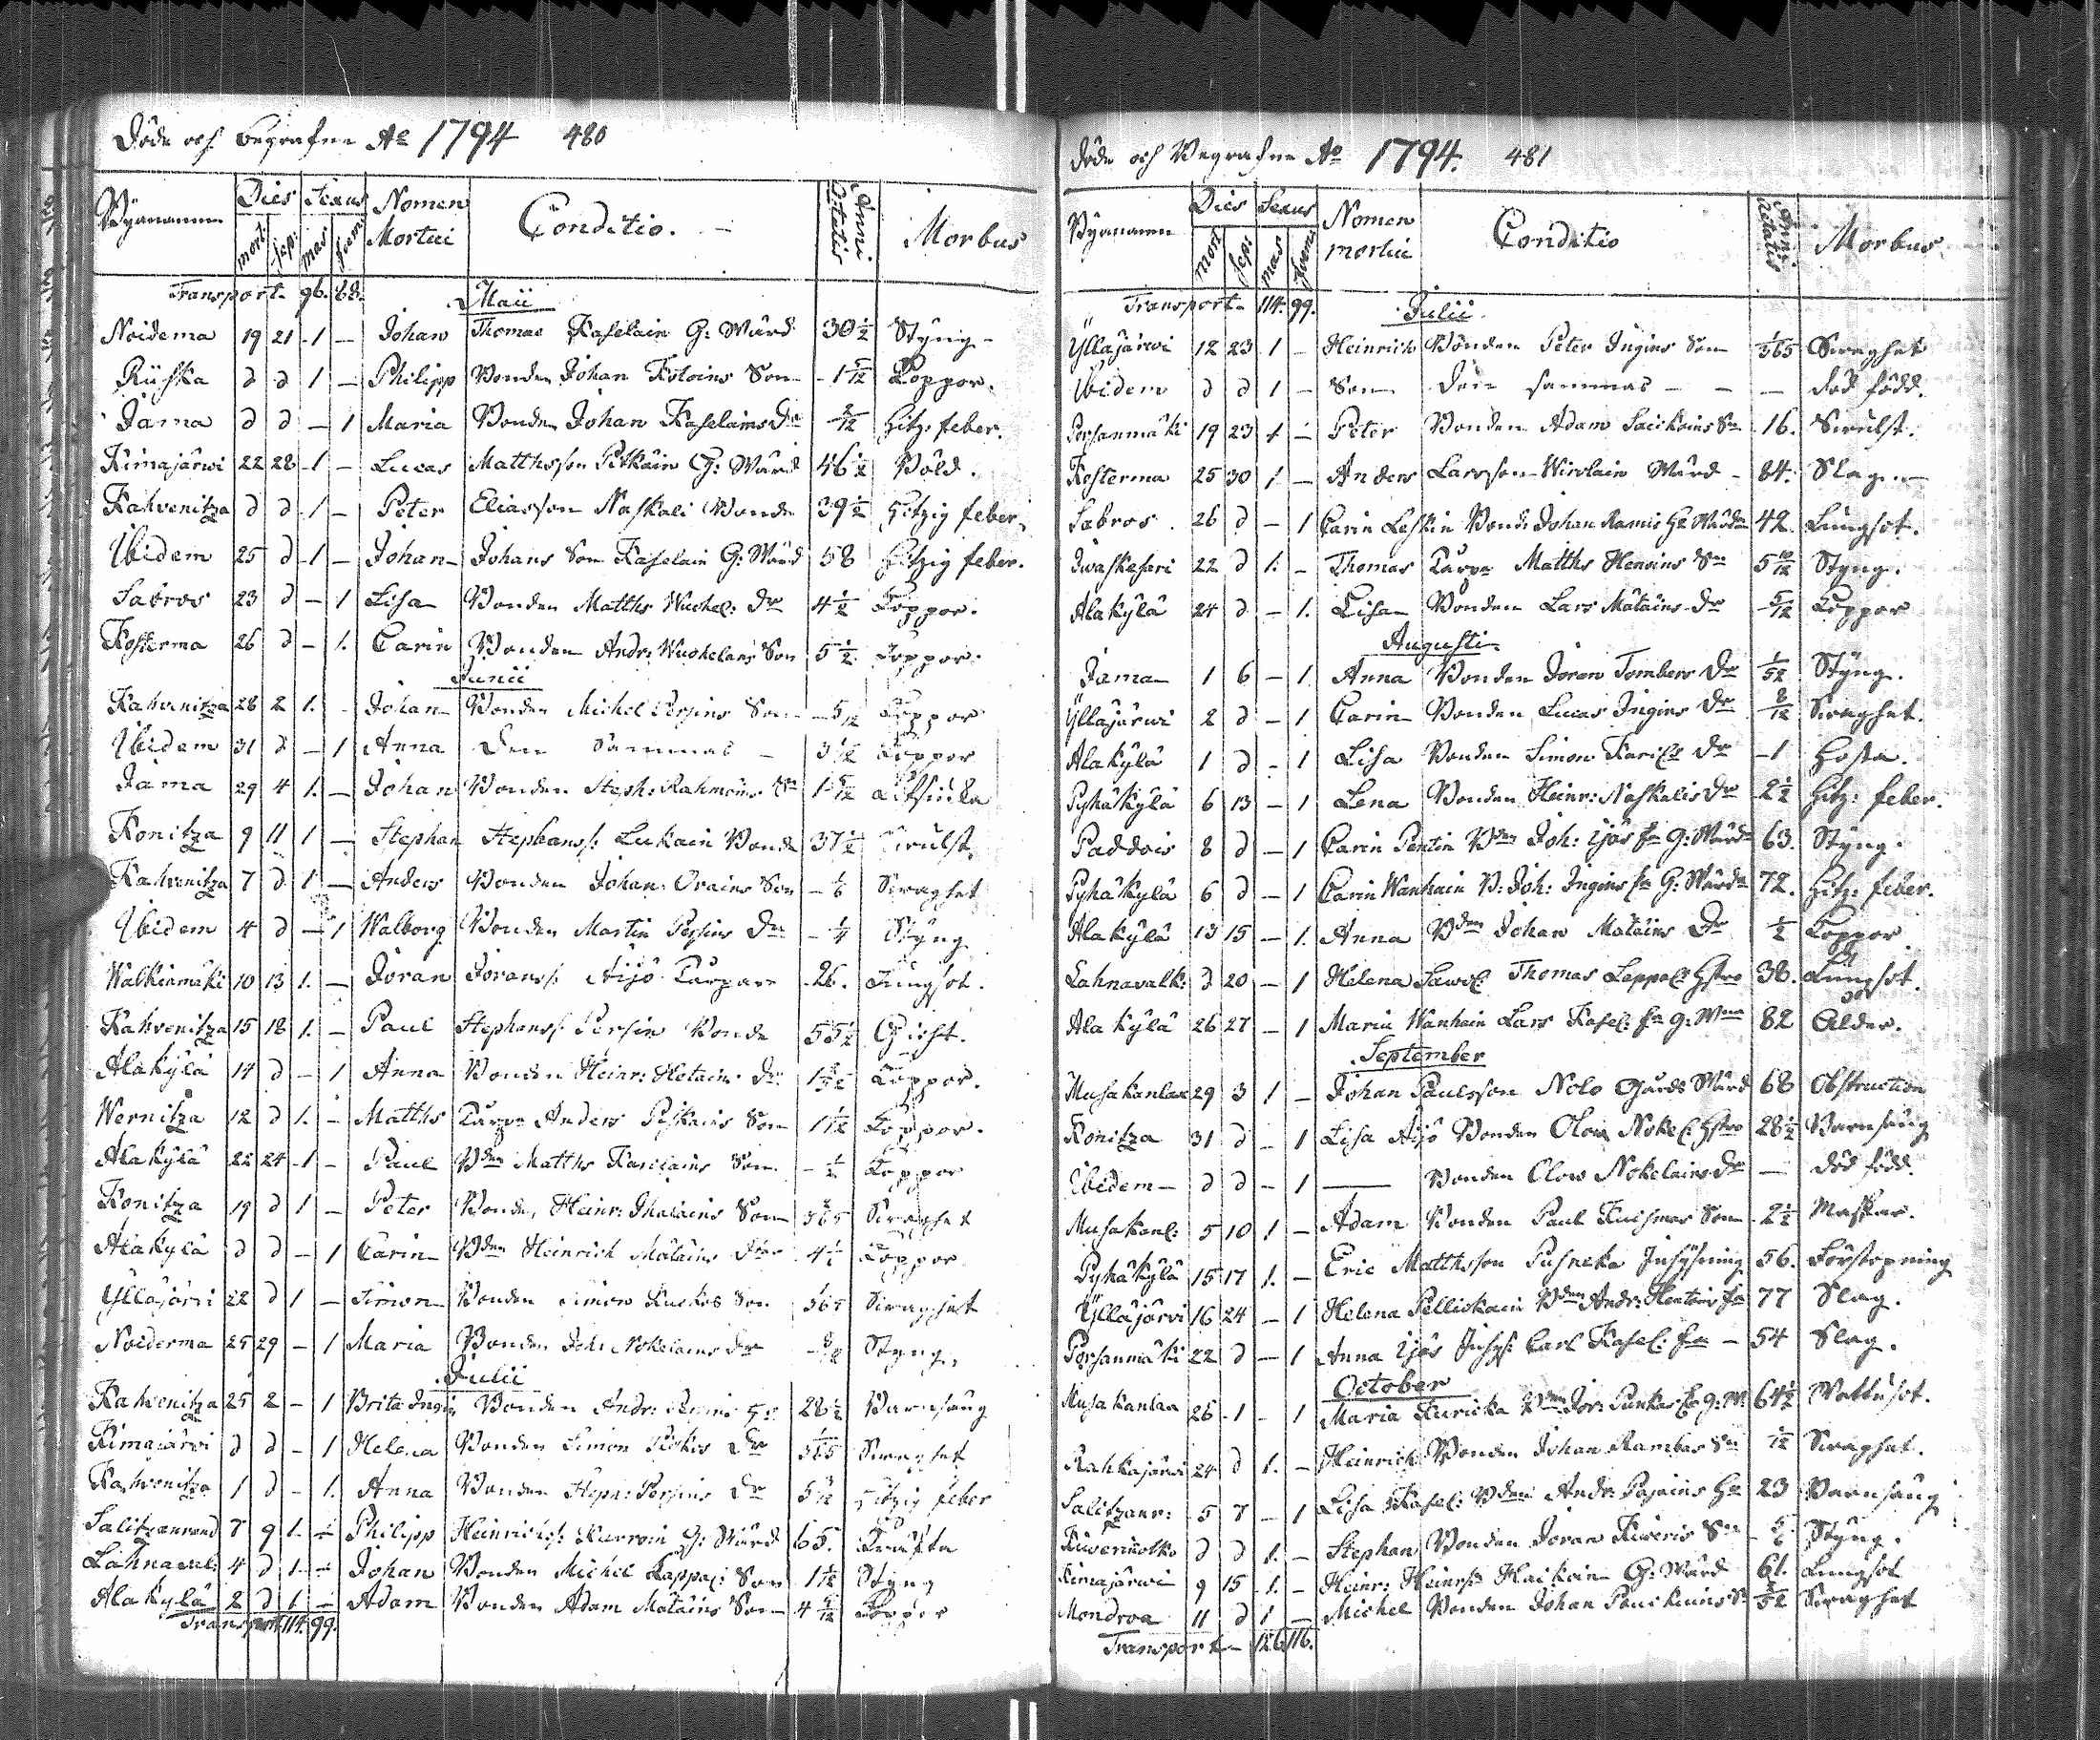 Döde och begrafne Aº 1794 480
Bÿanamn Dies Sexus Nomen Mortui Conditio. Anni Ætatis Morbus
mort: sep: mas fœm
Transport 96. 68.
Maii
Noidema 19 21 1 — Johan Thomae Kaselain G: Wärd 30 1/2 Stÿng
Riiska d d 1 — Philipp Bonden Johan Son 1 Koppor.
Jama d d — 1 Maria Bonden Johan Kaselains Dr Hitz: feber.
Kimajärwi 22 28 1 — Lucas Matthsson Pitkäin G: Wärd 46 1/2 Böld.
Kahvenitza d d 1 — Peter Eliasson Naskali Bonde 39 1/2 Hitzig feber.
Ibidem 25 d 1 — Johan Johans Son Kaselain G: Wärd 58 Hitzig feber.
Sabros 23 d — 1 Lisa Bonden Matths Dr 4 1/2 Koppor.
Kosterma 26 d — 1. Carin Bonden Andr: Son 5 1/2 Koppor.
Junii
Kahvenitza 28 2 1. Johan Bonden Michel Persins Son 5/12 Koppor
Ibidem 31 d — 1 Anna Den Sammas — Koppor
Jama 29 4 1. — Johan Bonden Steph: Rahmoins Sn
Konitza 9 11 1 — Stephan Stephanss: Lukain Bonde 37 1/2 Swulst.
Kahvenitza 7 d 1 — Anders Bonden Johan Orains Son Swaghet
Ibidem 4 d — 1 Walborg Bonden Martin Persins Dr 1/4 Stÿng
Walkiamäki 10 13 1. — Jöran Jöranss: Äijö Torpare 26. Lungsot.
Kahvenitza 15 18 1. — Paul Stephanss: Persin Bonde 55 1/2 Gicht.
Alakÿlä 14 d — 1 Anna Bonden Heinr: Dr Koppor.
Wernitza 12 d 1. — Matths Torpn Anders Son 1 1/12 Koppor.
Alakÿlä 22 24 1 — Paul Bden Matths Karilains Son 1/2 Koppor
Konitza 19 d 1 — Peter Bonden Heinr: Ihalains Son Swaghet
Alakÿlä d d — 1 Carin Bden Heinrich Mätäins Dr 4 1/2 Koppor
Ÿlläjärwi 22 d 1 — Simon Bonden Simon Son Swaghet
Noiderma 25 29 — 1 Maria Bonden Joh: Nokelains Dr Stÿng.
Julii
Kahvenitza 25 2 — 1 Brita Bonden Andr: 28 1/2 Barnsäng
Kimajärwi d d — 1 Helena Bonden Simon Dr Swaghet
Kahvenitza 1 d — 1. Anna Bonden Steph: Persins Dr Hitzig feber
Salitzanrand 7 9 1. — Philipp Heinrichs: G: Wärd 65.
Lahnaval: 4 d 1 — Johan Bonden Michel Lappal: Son 1 1/12 Stÿng
Alakÿlä 2 d 1 — Adam Bonden Adam Mätäins Son 4 Koppor
Transport 114. 99.
Döde och Begrafne Aº 1794. 481
Bÿanamn Dies Sexus Nomen mortui Conditio Anni Aetatis Morbus
mort sep: mas fœm
Transport 114. 99.
Julii
Ÿlläjärwi 12 23 1 — Heinrich Bonden Peter Ingins Son 1/365 Swaghet
Ibidem d d 1 — Son Den sammas — — — död född.
Porsanmäki 19 23 1 — Peter Bonden Adam Sn 16. Swulst.
Kosterma 25 30 1 — Anders Larsson Wirolain Wärd 84. Slag.
Sabros 26 d — 1 Carin Leskin Bond: Johan Ramis 42. Lungsot.
Iwaskesari 22 d 1. — Thomas Torpn Matths Sn 5 10/12 Stÿng.
Alakÿlä 24 d — 1. Lisa Bonden Lars Mätäins Dr 5/12 Koppor
Augusti
Jama 1 6 — 1 Anna Bonden Jöran Tombers Dr 1/52 Stÿng.
Ÿlläjärwi 2 d — 1 Carin Bonden Lucas Ingins Dr 8/12 Swaghet.
Alakÿlä 1 d — 1 Lisa Bonden Simon Karils Dr 1 Hosta.
Pyhäkÿlä 6 13 — 1 Lena Bonden Heinr: Naskalis Dr 2 1/2 Hitz: feber.
Paddois 8 d — 1 Carin Pentin Bden Joh: Ijäs 63. Stÿng.
Pyhäkÿlä 6 d — 1 Carin Wanhain B: Joh: Ingins 72. Hitz: feber.
Alakÿlä 13 15 — 1. Anna Bden Johan Mätäins Dr 1/2 Koppor
Lahnavalk: d 20 — 1 Helena Thomas Lappal: Hstro 38. Lungsot.
Alakÿlä 26 27 — 1 Maria Wanhain Lars Kasel: 82 Ålder.
September
Musakanlax 29 3 1 — Johan Paulsson Nolo Gårds Wärd 68 Obstruction
Konitza 31 d — 1 Lisa Äijö Bonden Olow Nokel: Hstro 28 1/2 Barnsäng
Ibidem d d — 1 — Bonden Olow Nokelains Dr — död född.
Musakanl: 5 10 1 — Adam Bonden Paul Kuismas Son 2 1/2 Maskar.
Pyhäkÿlä 15 17 1. — Eric Matthsson Inhÿsning 56. Förstopning
Ÿlläjärwi 16 24 — 1 Helena Pelliskain Bden Andr: 77 Slag.
Porsanmäki 22 d — 1 Anna Ijäs Inhÿs: Carl Kasel: — 54 Slag.
October
Musakanlax 26 1 — 1 Maria Kuricka 64 1/2 Wattusot.
Rahkajärwi 24 d 1. — Heinrich Bonden Johan Rambas Sn 1/12 Swaghet.
Salitzanr: 5 7 — 1 Lisa Kasel: Bden Andr: 23 Barnsäng
d d 1. — Stephan Bonden Jöran Sn Stÿng.
Kimajärwi 9 15 1. — Heinr: Heinrs: Haikoin G: Wärd 61. Lungsot
Mondroa 11 d 1 — Michel Bonden Johan Sn Swaghet
Transport 126 116.